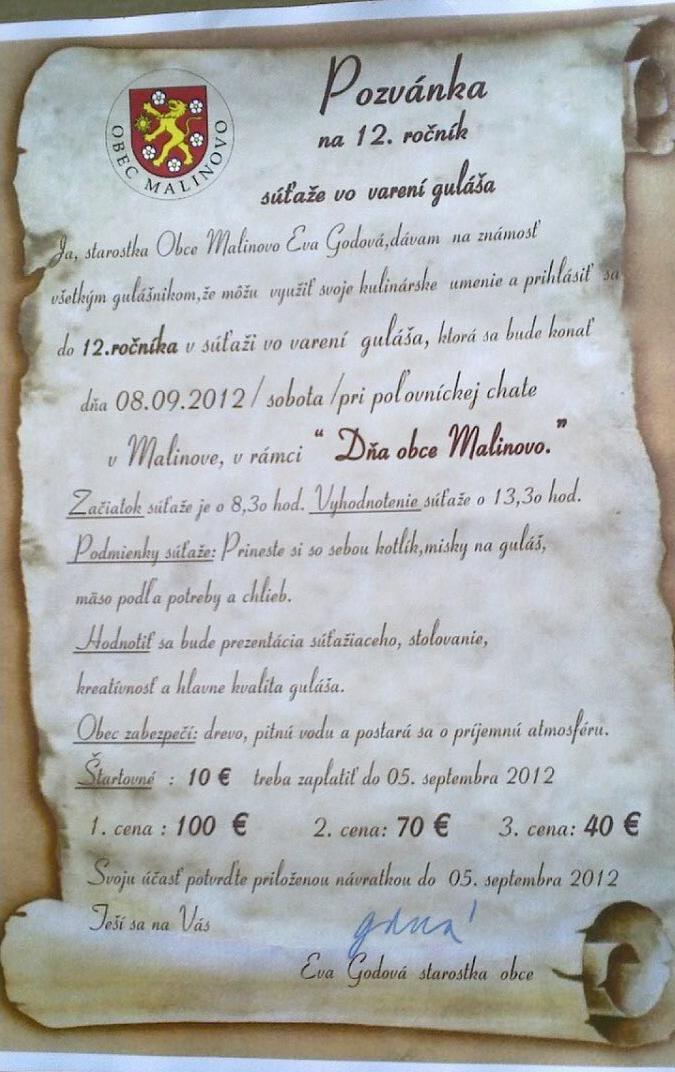 OBEC MALINOVO
Pozvánka
na 12. ročník
súťaže vo varení guláša
Ja, starostka Obce Malinovo Eva Godová,dávam na známosť
všetkým gulášnikom,že môžu využiť svoje kulinárske umenie a prihlásiť sa
do 12.ročníka v súťaži vo varení guláša, ktorá sa bude konať
dňa 08.09.2012 / sobota /pri poľovníckej chate
v Malinove, v rámci “ Dňa obce Malinovo.”
Začiatok súťaže je o 8,3o hod. Vyhodnotenie súťaže o 13,3o hod.
Podmienky súťaže: Prineste si so sebou kotlík,misky na guláš,
mäso podľa potreby a chlieb.
Hodnotiť sa bude prezentácia súťažiaceho, stolovanie,
kreatívnosť a hlavne kvalita guláša.
Obec zabezpečí: drevo, pitnú vodu a postará sa o príjemnú atmosféru.
Štartovné : 10 € treba zaplatiť do 05. septembra 2012
1. cena : 100 € 2. cena: 70 € 3. cena: 40 €
Svoju účasť potvrďte priloženou návratkou do 05. septembra 2012
Teší sa na Vás
Eva Godová starostka obce